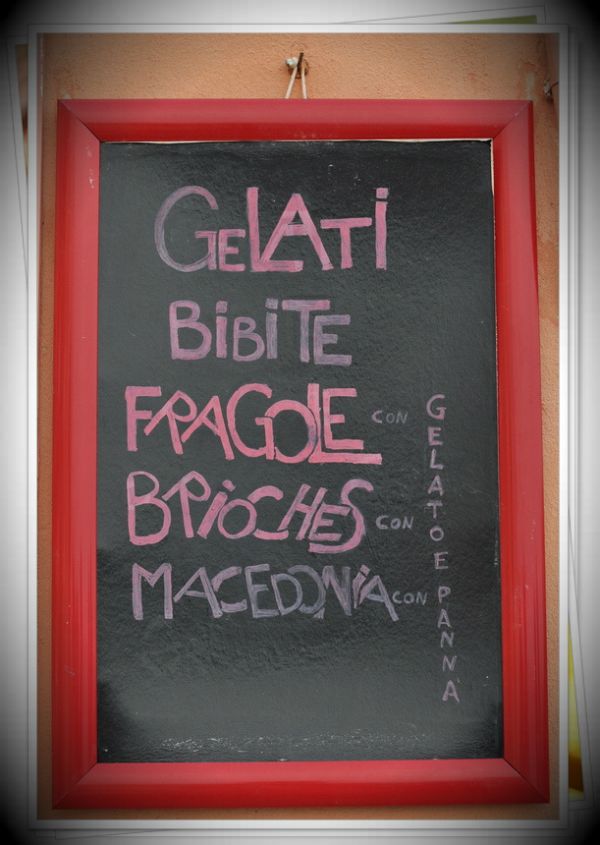 GELATI
BIBITE
FRAGOLE CON
BRIOCHES CON
MACEDONIA CON
GELATO E PANNA